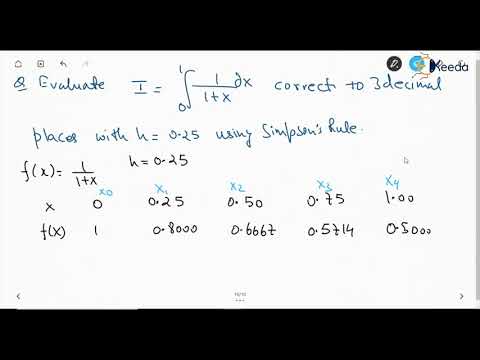 Keeda
Q Evaluate I = ∫₀¹ 1/(1+x) dx correct to 3 decimal
places with h = 0.25 using Simpson's Rule.
f(x) = 1/(1+x) h = 0.25
x₀ x₁ x₂ x₃ x₄
x 0 0.25 0.50 0.75 1.00
f(x) 1 0.8000 0.6667 0.5714 0.5000